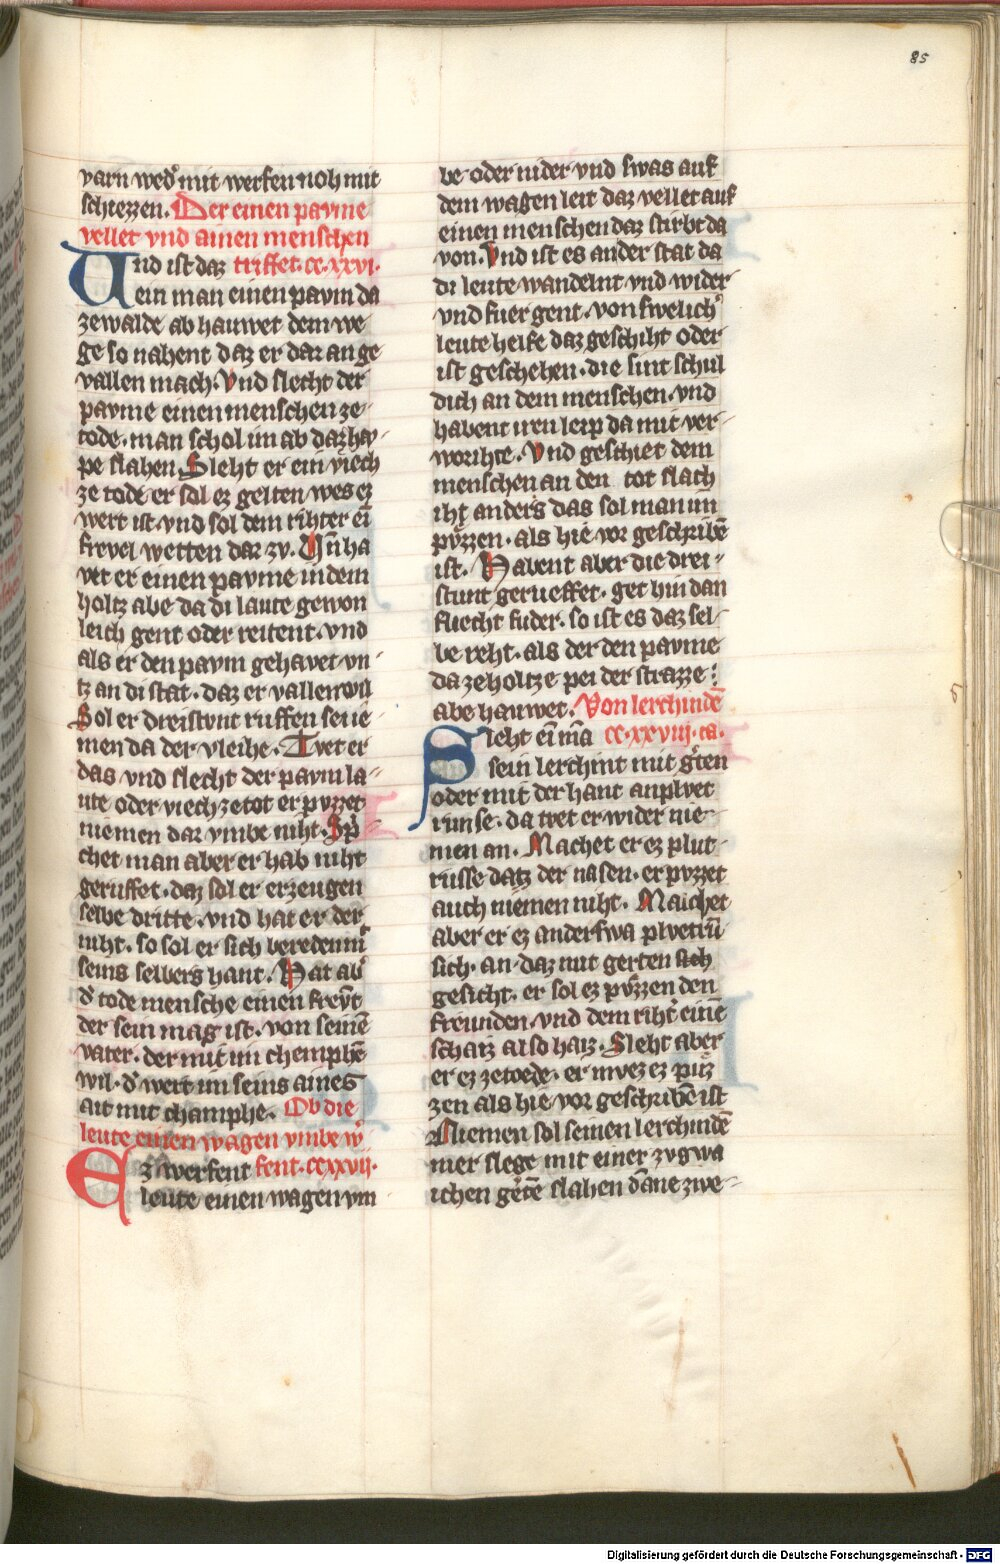 85
varn wedͦ mit werfen noh mit
schiezzen. Der einen pavme
vellet vnd ainen menschen
Und ist daz triffet. cc. xxvi.
ein man einen pavm da
zewalde ab hauwet dem we
ge so nahent daz er dar an ge
vallen mach. Vnd slecht der
pavme einen menschen ze
tode. man schol im ab daz hav
pe slahen. Sleht er ein viech
ze tode er sol ez gelten wes ez
wert ist. vnd sol dem rihter ei
frevel wetten dar zv. Vn̄ ha
vet er einen pavme in dem
holtz abe da di laute gewon
leich gent oder reitent. vnd
als er den pavm gehavet vn
tz an di stat. daz er vallen wil
Sol er dreistvnt ruffen seiie
men da der vleihe. Tvet er
das vnd slecht der pavm la
ute oder viech ze tot er pvzzet
niemen dar vmbe niht. Spͥ
chet man aber er hab niht
geruffet. daz sol er erzeugen
selbe dritte. vnd hat er der
niht. so sol er sich bereden mͥ
seins selbers hant. Hat abͦ
dͦ tode mensche einen frevt
der sein mag ist. von seinē
vater. der mit im chemphē
wil. dͦ wert im seins aines
ait mit champhe. Ob die
leute einen wagen vmbe wͦ
Ez werfent fent. ccxxvii.
leute einen wagen vm
be oder nider vnd swas auf
dem wagen leit daz vellet auf
einen menschen daz stirbt da
von. Vnd ist es ander stat da
di leute wandelnt vnd wider
vnd fuer gent. von swelichͦ
leute helfe daz geschiht oder
ist geschehen. die sint schul
dich an dem menschen. vnd
habent iren leip da mit ver
worihte. Vnd geschiet dem
menschen an den tot slach
iht anders das sol man im
pvzzen. als hie vor geschribē
ist. Habent aber die drei
stunt gerueffet. get hin dan
fliecht fuder. so ist es daz sel
be reht. als der den pavme
da ze holtze pei der strazze
abe hauwet. Von lerchindē
Sleht ei mā cc. xxviii. ca.
sein lerchint mit gͦten
oder mit der hant an plvet
runse. da tvet er wider nie
men an. Machet er ez plut
russe datz der nasen. er pvzzet
auch niemen niht. Maichet
aber er ez anderswa plvetrū
sich. an daz mit gerten sich
gesicht. er sol ez pvzzen den
freunden. vnd dem rihtͦ einē
schatz also haiz. Sleht aber
er ez ze toede. er mvez ez puz
zen als hie vor geschribē ist
Niemen sol seinen lerchindē
mer slege mit einer zvgwa
ichen gertē slahen dāne zwe
Digitalisierung gefördert durch die Deutsche Forschungsgemeinschaft - DFG